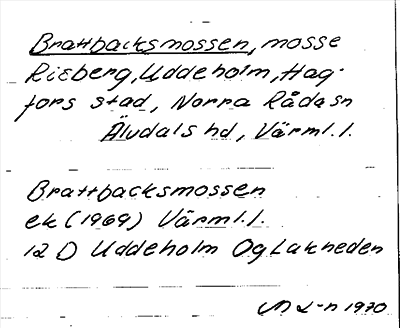 Brattbacksmossen, mosse
Risberg, Uddeholm, Hag-
fors stad, Norra Råda sn
Älvdals hd, Värml. l.
Brattbacksmossen
ek (1969) Värml. l.
12 D Uddeholm
1970